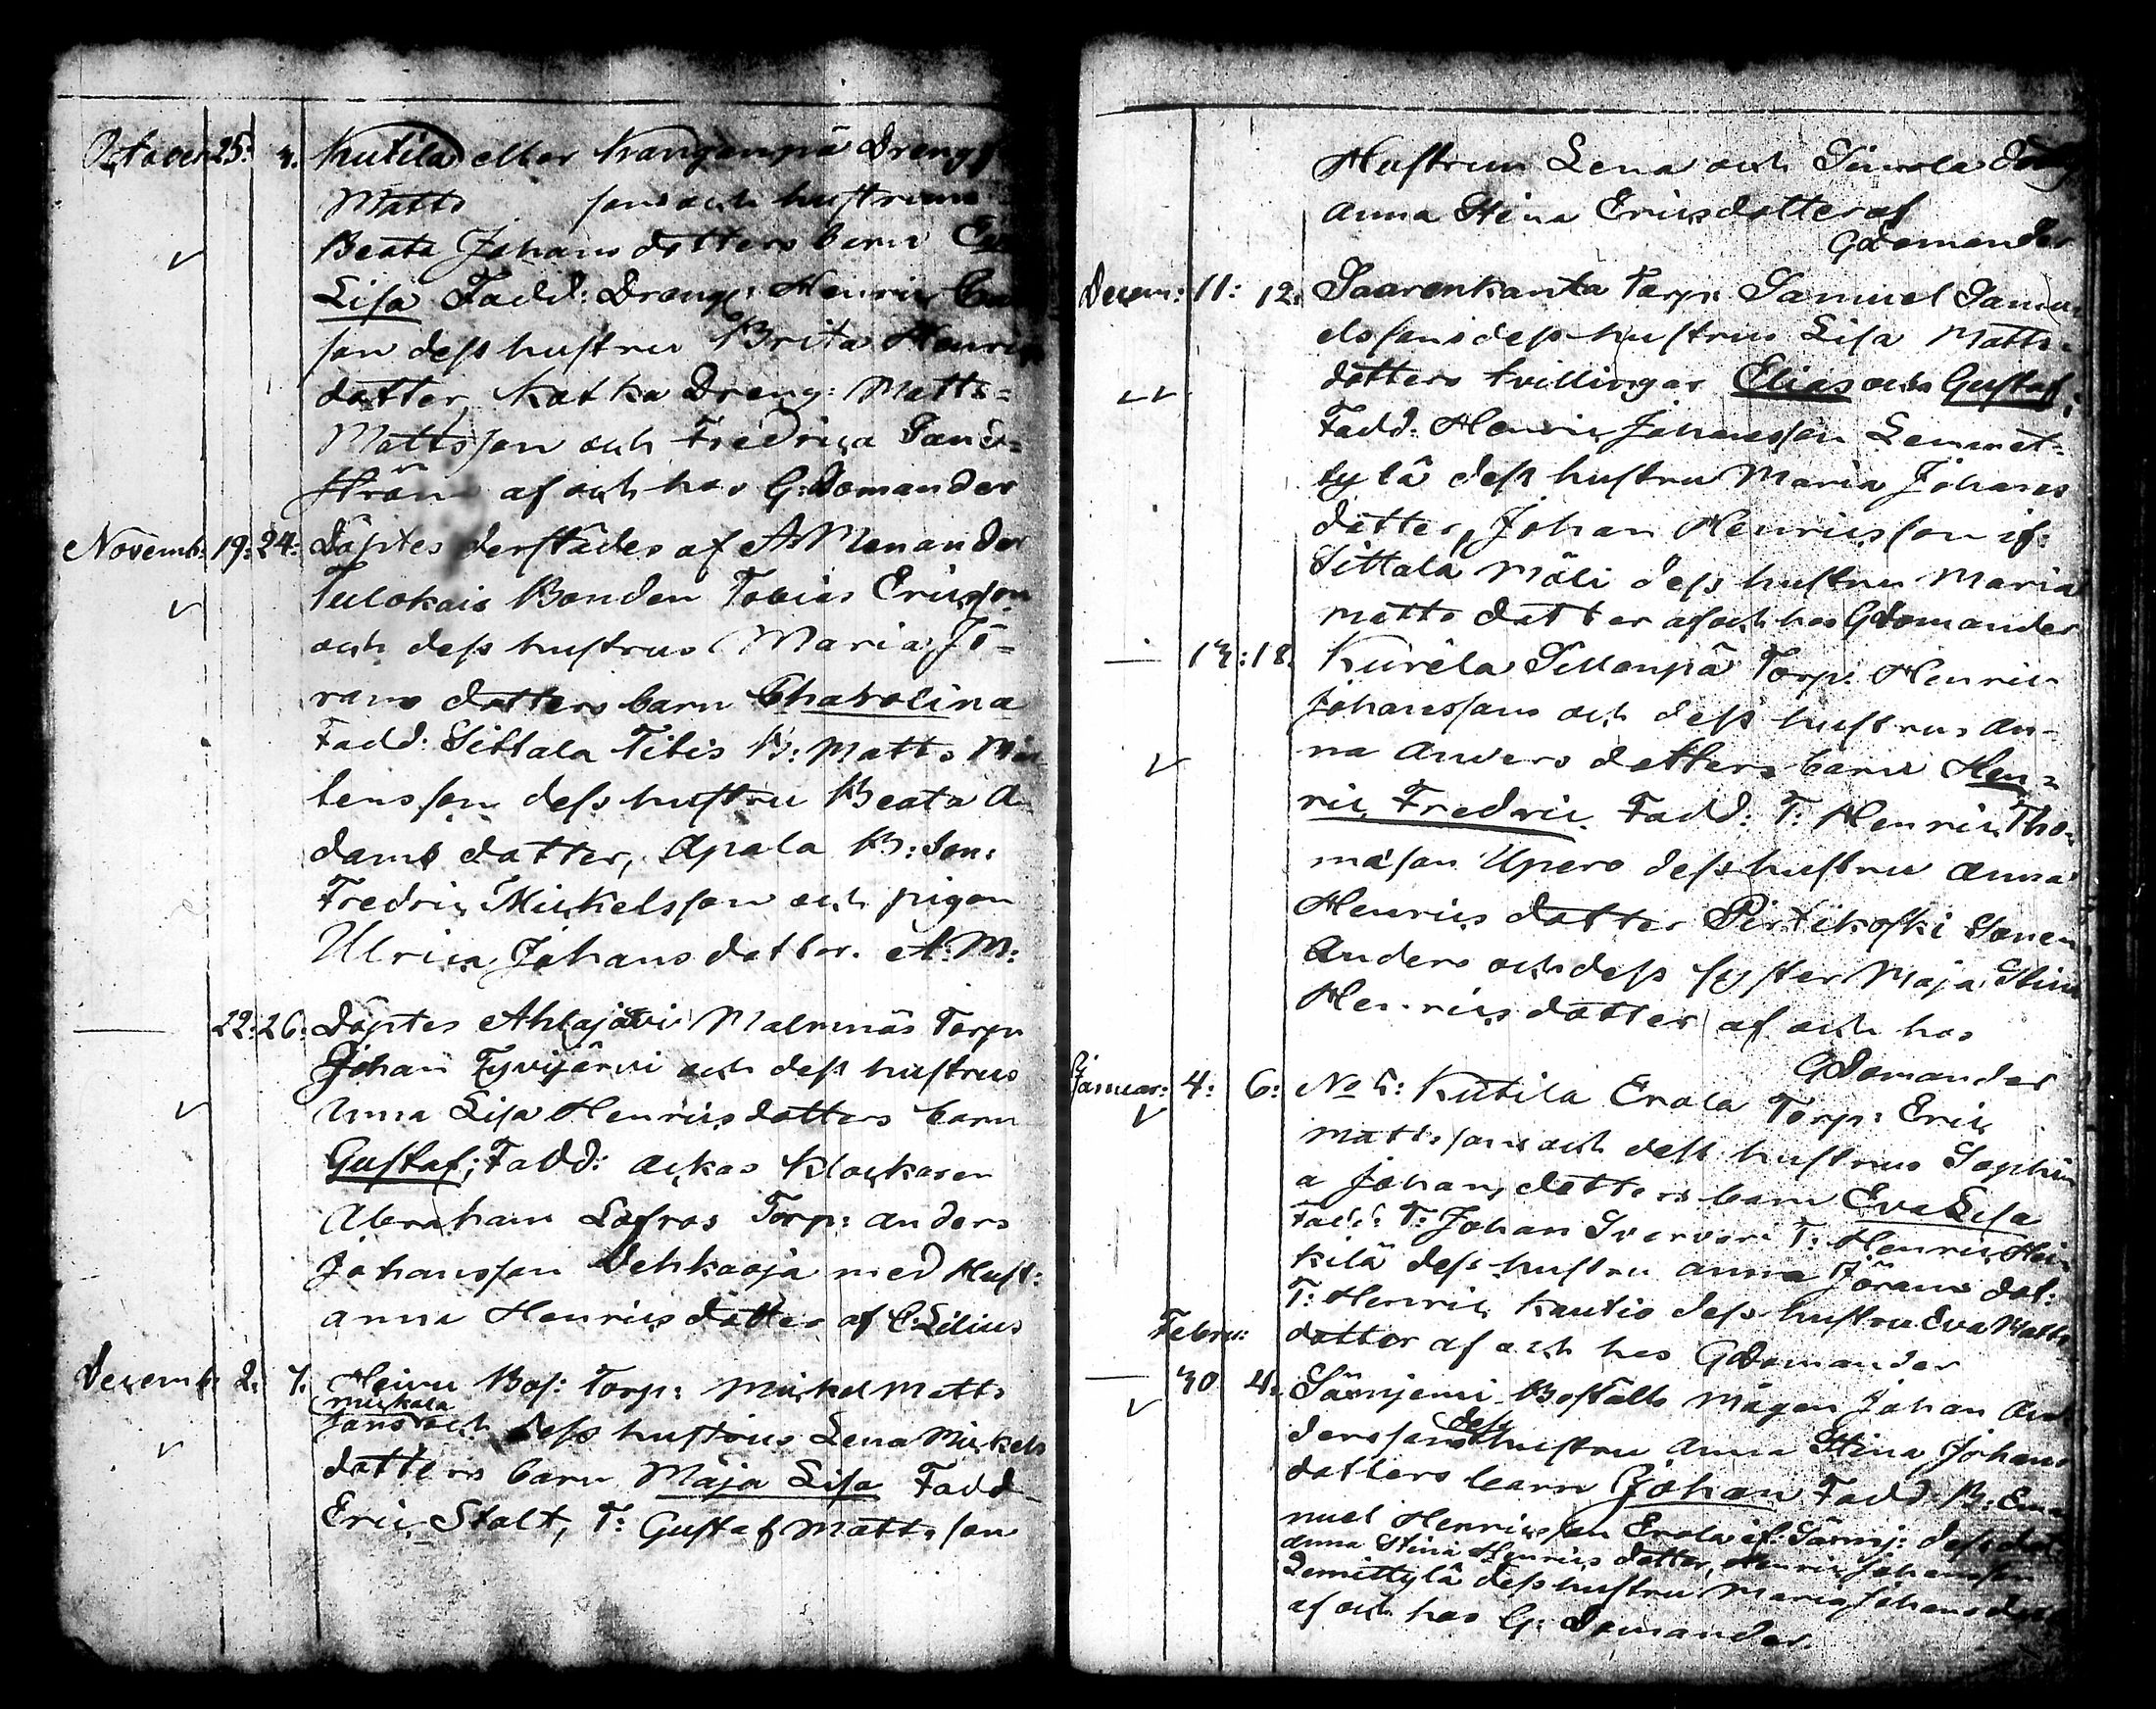 October 25: 4. Kutila eller Kangenpä Dreng
Matts sons och hustruns
Beata Johans dotters barn Eva
Lisa Fadd: Dreng: Henric
son dess hustru Brita Henrics
dotter, Katka Dreng: Matts=
Mattsson och Fredrica Sand=
ström af och hos G: Domander
Novemb: 19: 24: Döptes derstädes af A: Menander
Tulokais Bonden Tobias Ericsson
och dess hustrus Maria Jö=
rans dotters barn Charolina
Fadd: Sittala Titis B: Matts Mic
lensson dess hustru Beata A
dams dotter, Apala B: Son:
Fredric Mickelsson och pigan
Ulrica Johans dotter. A: M:
— 22: 26: Döptes Ahlajärvi Malmnäs Torp:
Johan Tyvijärvi och dess hustrus
Anna Lisa Henricsdotters barn
Gustaf; Fadd: Ackas Klockaren
Abraham Lofros Torp: Anders
Johansson Vehkaoja med Hust:
Anna Henrics dotter af C: Lilius
Decemb 2: 7. Heinu Bos: Torp: Mickel Matts
muckala
sons och dess hustrus Lena Mickels
dotters barn Maja Lisa Fadd
Eric Stolt, T: Gustaf Mattsson
Hustrun Lena och Simola
Anna Stina Ericsdotter af
G Domander
Decem: 11: 12: Saarenkanta Torp: Samuel Samu
elssons dess hustrus Lisa Matts=
dotters tvillingar Elias och Gustaf;
Fadd: Henric Johansson Lemmet=
tylä dess hustru Maria Johans
dotter, Johan Henricsson if:
Sittala Mäli dess hustru Maria
Matts dotter af och hos G Domander
— 14: 18. Kurela Sillanpä Torp: Henric
Johanssons och dess hustrus An-
na Anders dotters barn Hen=
ric Fredric. Fadd: T: Henric Tho=
masson Upero dess hustru Anna
Henrics dotter Pirtikoski Sonen
Anders och dess syster Maja Stina
Henrics dotter af och hos
G Domander
Januar: 4: 6: No 5: Kutila Erola Torp: Eric
Mattssons och dess hustrus Sophi
a Johans dotters barn Eva Lisa
Fadd: T: Johan T: Henric Hei
kilä dess hustru Anna Jörans dot:
T: Henric Kautio dess hustru Eva Matts
Febru: dotter af och hos G Domander
— 30 4. Särnjemi Boställs Mågen Johan An
dess
derssons hustru Anna Stina Johans
dotters barn Johan Fadd B: Ema
nuel Henricsson Erola if: Särnj: dess dot:
Anna Stina Henrics dotter, Henric Johansson
Lemittylä dess hustru Maria Johans dotter
af och hos G: Domander.